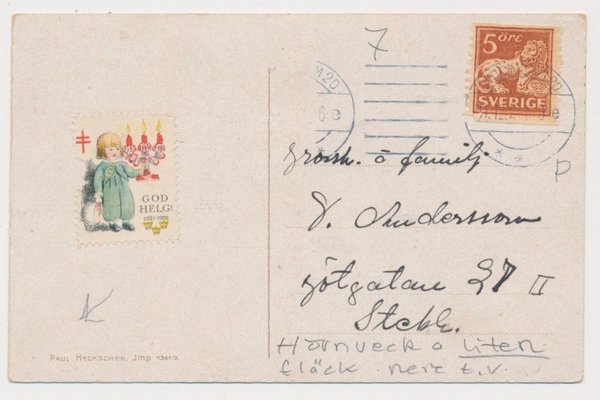 7
5 ÖRE
SVERIGE
GOD
HELG!
Grossh. o familj
V. Andersson
Götgatan 27 II
Stckh.
Hörnveck o liten
fläck nere t.v.
P
PAUL HECKSCHER, Jmp. 1341/2.